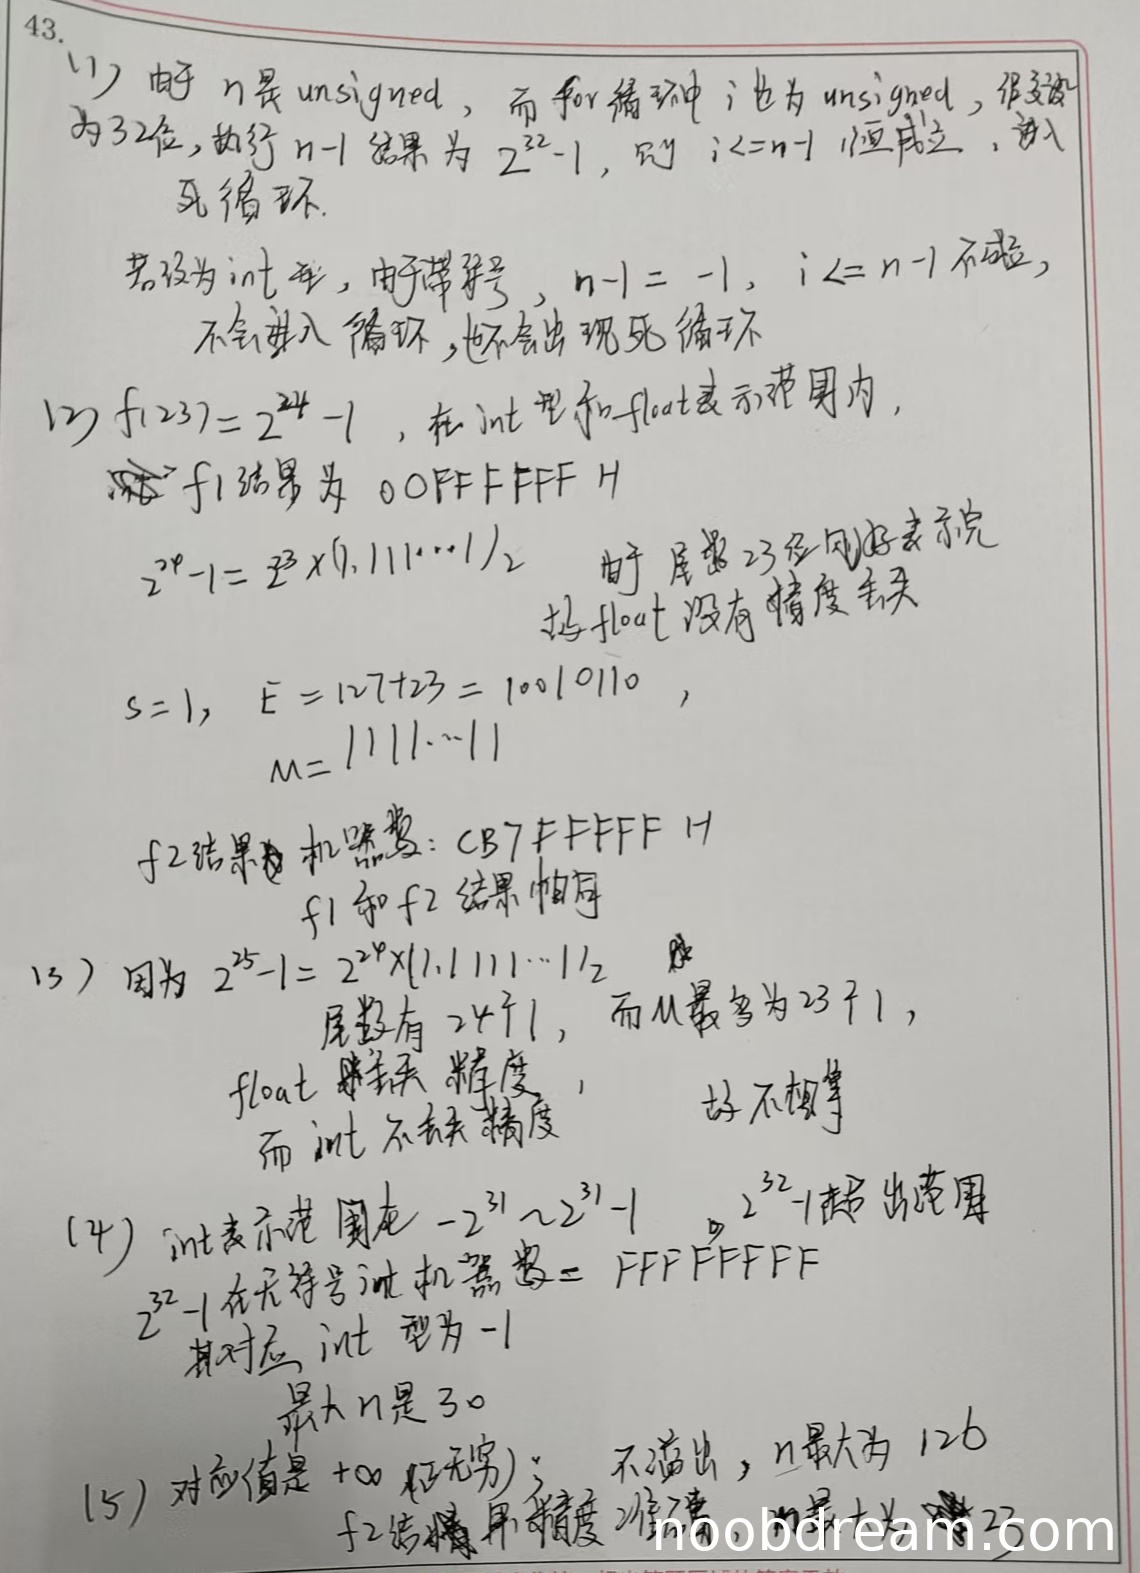 43.
(1) 由于 n是 unsigned, 而for循环中 i也为 unsigned,
为32位,执行 n-1 结果为 2^32-1, 则 i<=n-1 恒成立, 进入
死循环.
若设为int型, 由于带符号, n-1 = -1, i <= n-1 不成立,
不会进入循环,也不会出现死循环
(2) f(23)=2^24-1, 在int型和float表示范围内,
f1结果为 00FFFFFF H
2^24-1=2^23×(1.111···1)2 由于尾数23位刚好表示完
故float没有精度丢失
S=1, E=127+23=10010110,
M=1111···11
f2结果 机器数: CB7FFFFF H
f1和f2结果相等
(3) 因为 2^25-1=2^24×(1.1111···1)2
尾数有24个1, 而M最多为23个1,
float 丢失精度,
故不相等
而int不丢失精度
(4) int表示范围在 -2^31~2^31-1 2^32-1超出范围
2^32-1在无符号int机器数= FFFFFFFF
其对应int型为-1
最大n是30
(5) 对应值是+∞(正无穷); 不溢出, n最大为126
f2结果精度准确, n最大为 23
noobdream.com